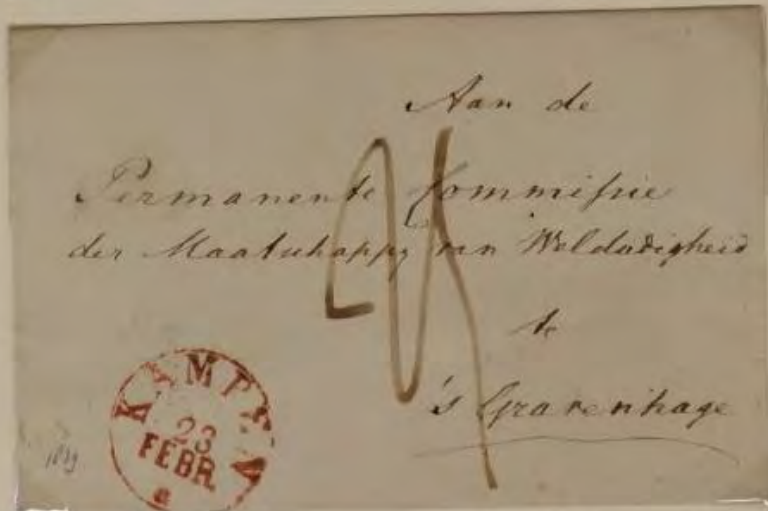 Aan de
Permanente Commissie
der Maatschappy van Weldadigheid
te
's Gravenhage
KAMPEN
23
FEBR.
a